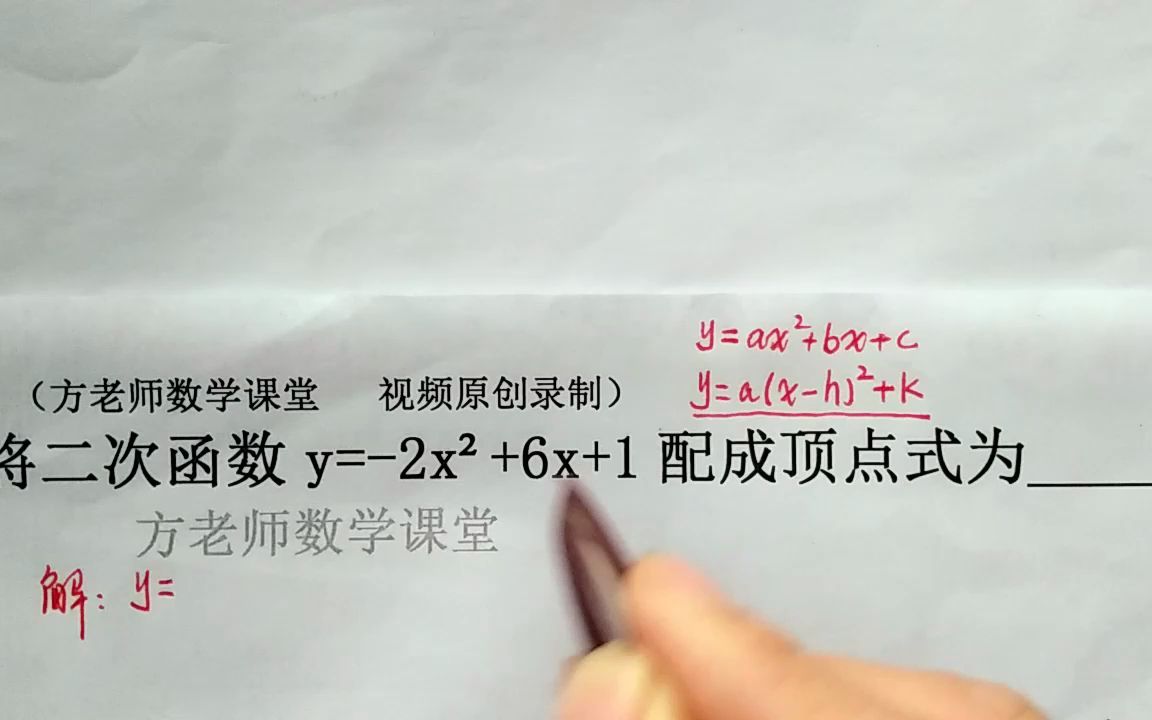 y=ax²+bx+c
y=a(x-h)²+k
（方老师数学课堂 视频原创录制）
将二次函数 y=-2x²+6x+1 配成顶点式为____
方老师数学课堂
解: y=